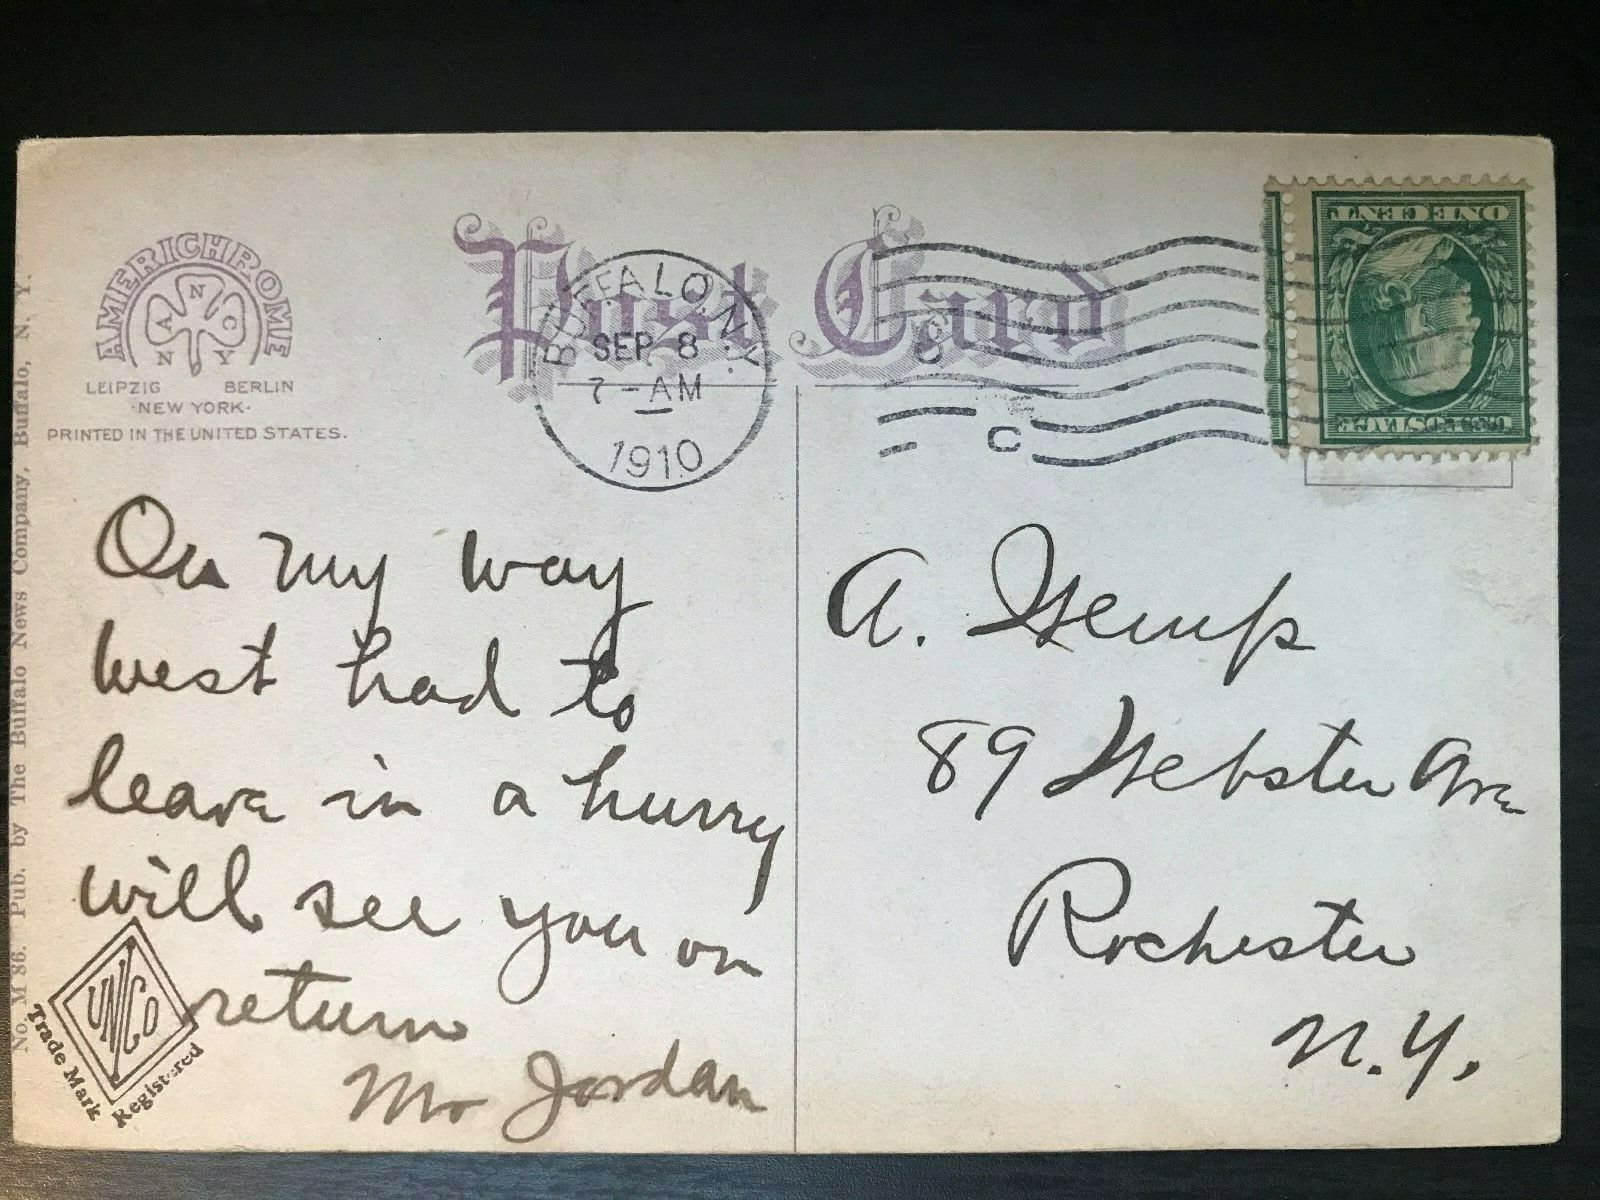 AMERICHROME
A N C
N Y
LEIPZIG BERLIN
·NEW YORK·
PRINTED IN THE UNITED STATES.
Post Card
BUFFALO, N.Y.
SEP 8
7-AM
1910
C
ONE CENT
U.S. POSTAGE
No. M 86. Pub. by The Buffalo News Company, Buffalo, N. Y.
On my way
west had to
leave in a hurry
will see you on
return
Mr Jordan
UNCO
Trade Mark
Registered
A.
89 Webster Ave
Rochester
N.Y.